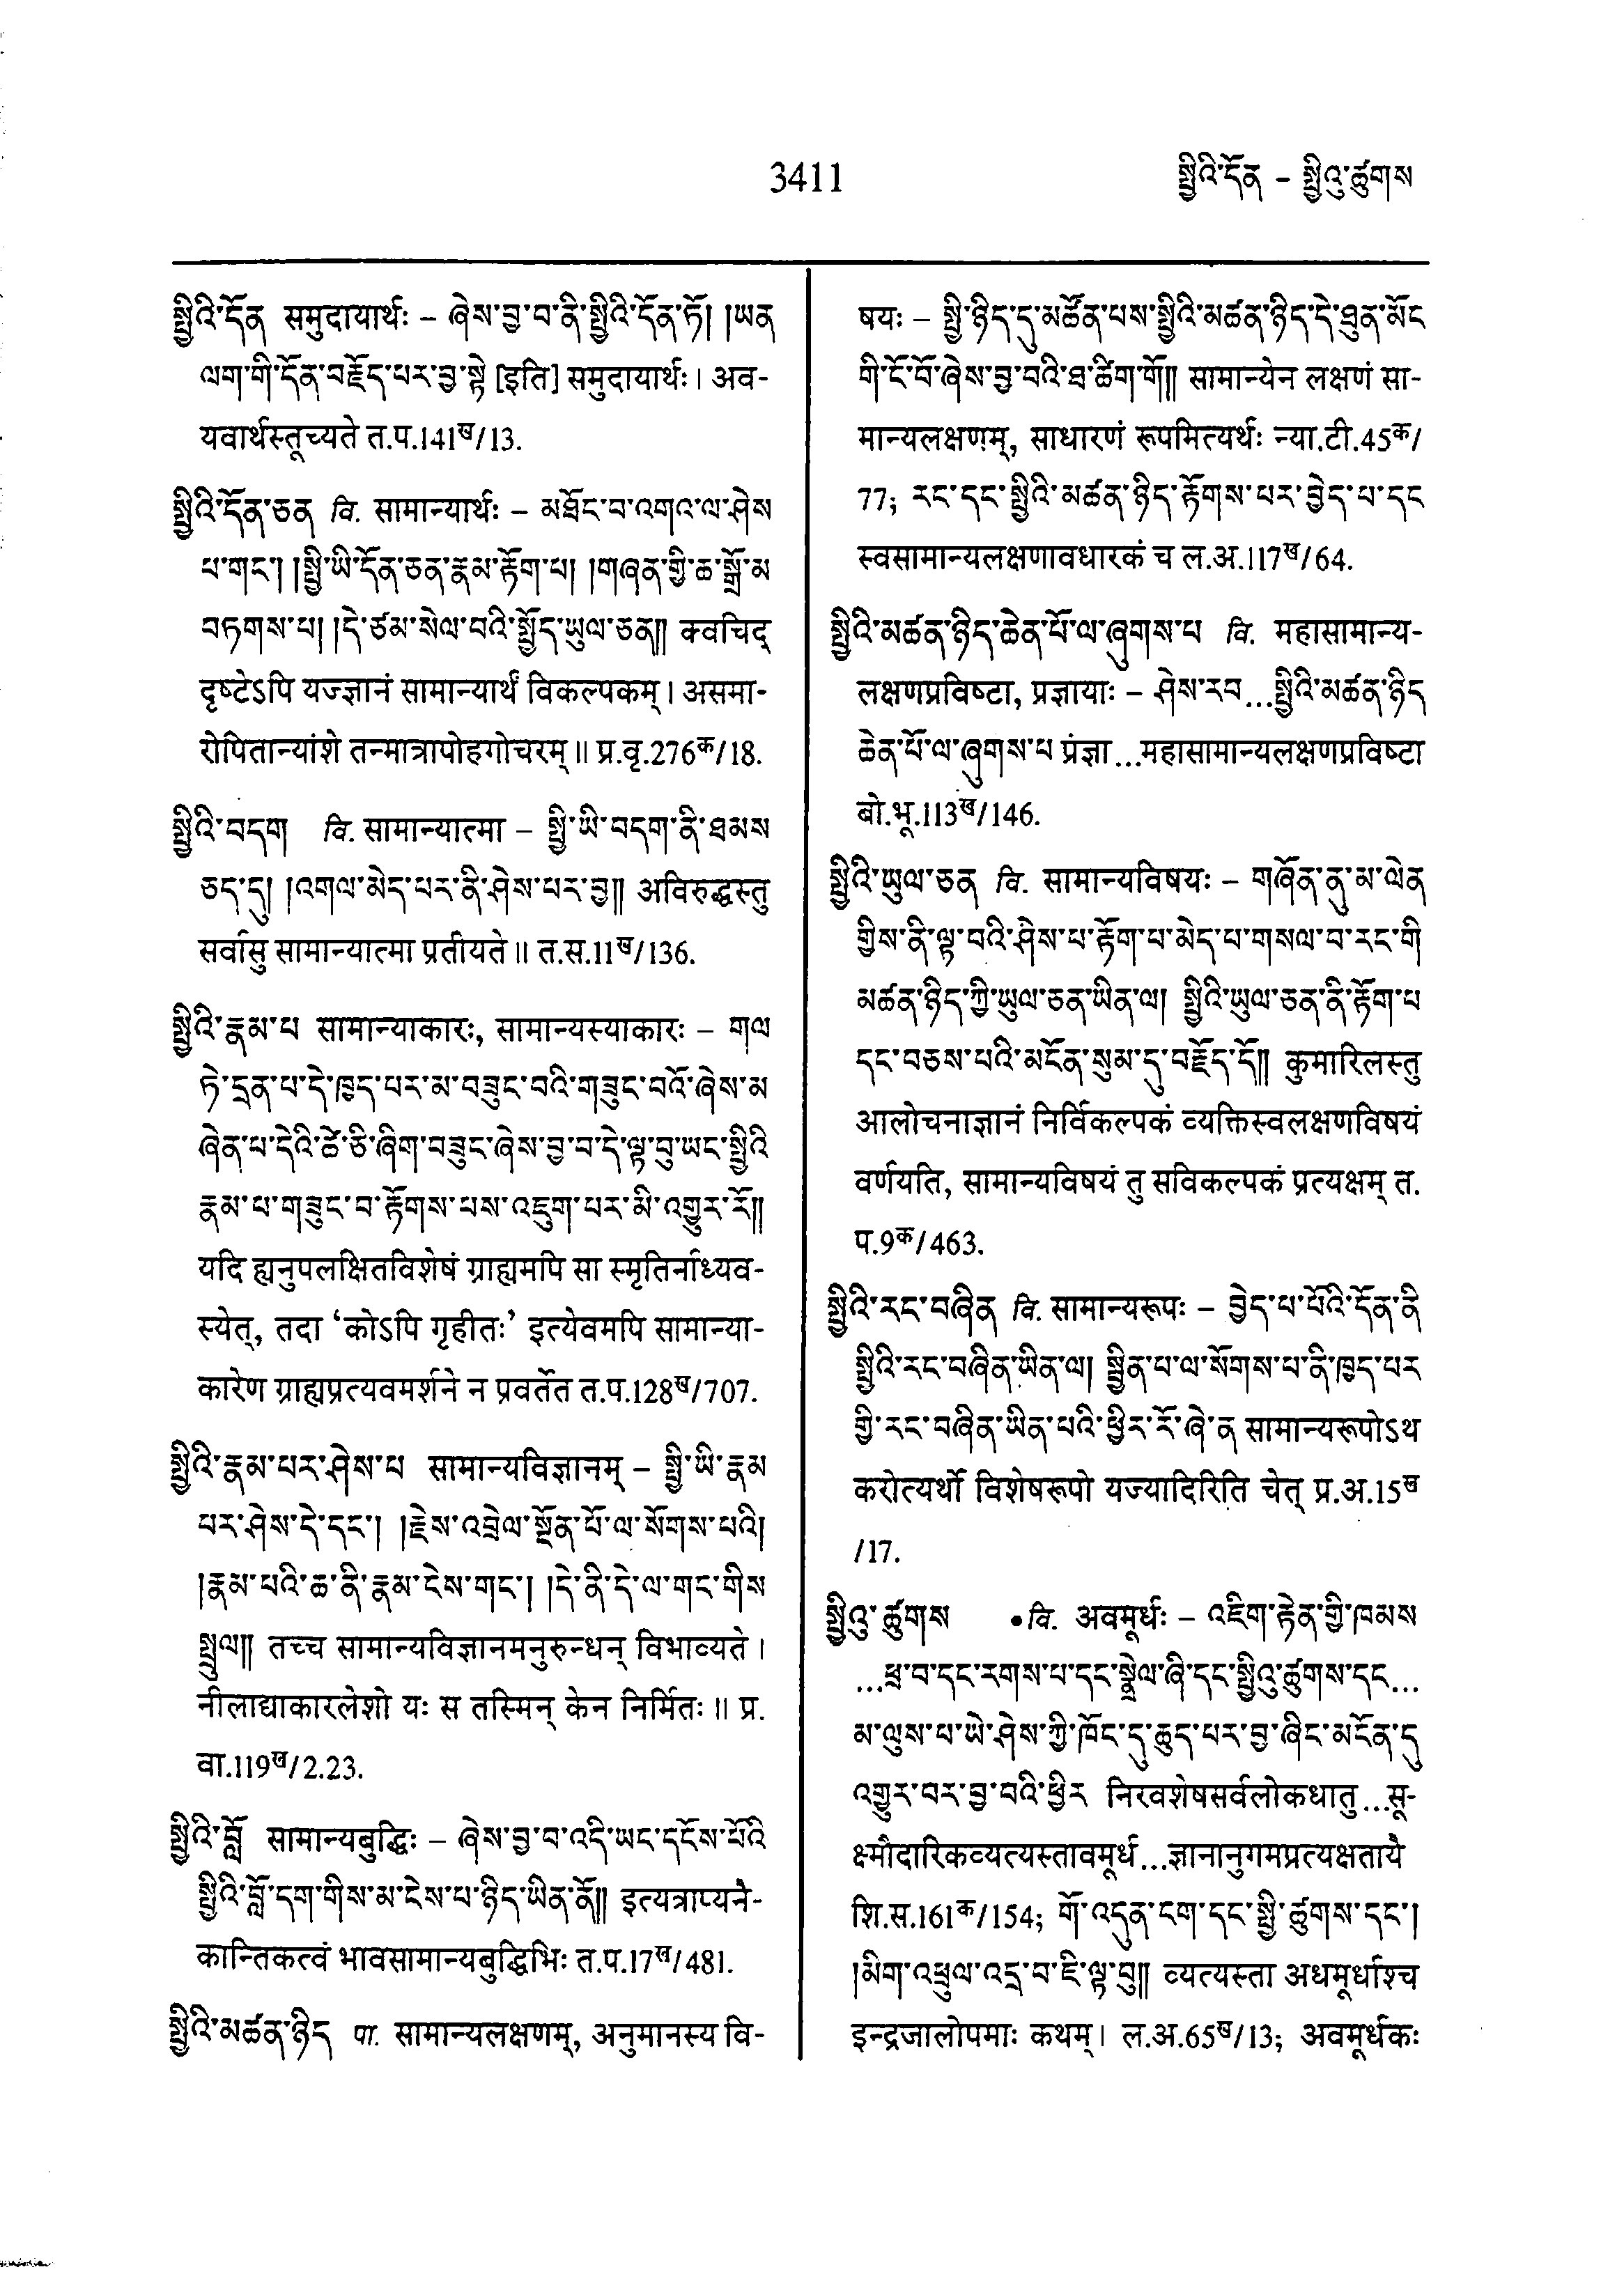 3411
སྤྱིའི་དོན – སྤྱིའུ་ཚུགས
སྤྱིའི་དོན समुदायार्थः – ཞེས་བྱ་བ་ནི་སྤྱིའི་དོན་ཏོ། །ཡན
ལག་གི་དོན་བརྗོད་པར་བྱ་སྟེ [इति] समुदायार्थः। अव-
यवार्थस्तूच्यते त.प.141ख/13.
སྤྱིའི་དོན་ཅན वि. सामान्यार्थः – མཐོང་བ་འགའ་ལ་ཤེས
པ་གང་། །སྤྱི་ཡི་དོན་ཅན་རྣམ་རྟོག་པ། །གཞན་གྱི་ཆ་སྒྲོ་མ
བཏགས་པ། །དེ་ཙམ་སེལ་བའི་སྤྱོད་ཡུལ་ཅན།། क्वचिद्
दृष्टेऽपि यज्ज्ञानं सामान्यार्थं विकल्पकम्। असमा-
रोपितान्यांशे तन्मात्रापोहगोचरम्॥ प्र.वृ.276क/18.
སྤྱིའི་བདག वि. सामान्यात्मा – སྤྱི་ཡི་བདག་ནི་ཐམས
ཅད་དུ། །འགལ་མེད་པར་ནི་ཤེས་པར་བྱ།། अविरुद्धस्तु
सर्वासु सामान्यात्मा प्रतीयते॥ त.स.11ख/136.
སྤྱིའི་རྣམ་པ सामान्याकारः, सामान्यस्याकारः – གལ
ཏེ་དྲན་པ་དེ་ཁྱད་པར་མ་བཟུང་བའི་གཟུང་བའོ་ཞེས་མ
ཞེན་པ་དེའི་ཚེ་ཅི་ཞིག་བཟུང་ཞེས་བྱ་བ་དེ་ལྟ་བུ་ཡང་སྤྱིའི
རྣམ་པ་གཟུང་བ་རྟོགས་པས་འཇུག་པར་མི་འགྱུར་རོ།།
यदि ह्यनुपलक्षितविशेषं ग्राह्यमपि सा स्मृतिर्नाध्यव-
स्येत्, तदा ‘कोऽपि गृहीतः’ इत्येवमपि सामान्या-
कारेण ग्राह्यप्रत्यवमर्शने न प्रवर्तेत त.प.128ख/707.
སྤྱིའི་རྣམ་པར་ཤེས་པ सामान्यविज्ञानम् – སྤྱི་ཡི་རྣམ
པར་ཤེས་དེ་དང་། །རྗེས་འབྲེལ་སྔོན་པོ་ལ་སོགས་པའི།
།རྣམ་པའི་ཆ་ནི་རྣམ་ངེས་གང་། །དེ་ནི་དེ་ལ་གང་གིས
སྤྲུལ།། तच्च सामान्यविज्ञानमनुरुन्धन् विभाव्यते।
नीलाद्याकारलेशो यः स तस्मिन् केन निर्मितः॥ प्र.
वा.119ख/2.23.
སྤྱིའི་བློ सामान्यबुद्धिः – ཞེས་བྱ་བ་འདི་ཡང་དངོས་པོའི
སྤྱིའི་བློ་དག་གིས་མ་ངེས་པ་ཉིད་ཡིན་ནོ།། इत्यत्राप्यनै-
कान्तिकत्वं भावसामान्यबुद्धिभिः त.प.17ख/481.
སྤྱིའི་མཚན་ཉིད पा. सामान्यलक्षणम्, अनुमानस्य वि-
षयः – སྤྱི་ཉིད་དུ་མཚོན་པས་སྤྱིའི་མཚན་ཉིད་དེ་ཐུན་མོང
གི་ངོ་བོ་ཞེས་བྱ་བའི་ཐ་ཚིག་གོ།། सामान्येन लक्षणं सा-
मान्यलक्षणम्, साधारणं रूपमित्यर्थः न्या.टी.45क/
77; རང་དང་སྤྱིའི་མཚན་ཉིད་རྟོགས་པར་བྱེད་པ་དང
स्वसामान्यलक्षणावधारकं च ल.अ.117ख/64.
སྤྱིའི་མཚན་ཉིད་ཆེན་པོ་ལ་ཞུགས་པ वि. महासामान्य-
लक्षणप्रविष्टा, प्रज्ञायाः – ཤེས་རབ...སྤྱིའི་མཚན་ཉིད
ཆེན་པོ་ལ་ཞུགས་པ प्रज्ञा...महासामान्यलक्षणप्रविष्टा
बो.भू.113ख/146.
སྤྱིའི་ཡུལ་ཅན वि. सामान्यविषयः – གཞོན་ནུ་མ་ལེན
གྱིས་ནི་ལྟ་བའི་ཤེས་པ་རྟོག་པ་མེད་པ་གསལ་བ་རང་གི
མཚན་ཉིད་ཀྱི་ཡུལ་ཅན་ཡིན་ལ། སྤྱིའི་ཡུལ་ཅན་ནི་རྟོག་པ
དང་བཅས་པའི་མངོན་སུམ་དུ་བརྗོད་དོ།། कुमारिलस्तु
आलोचनाज्ञानं निर्विकल्पकं व्यक्तिस्वलक्षणविषयं
वर्णयति, सामान्यविषयं तु सविकल्पकं प्रत्यक्षम् त.
प.9क/463.
སྤྱིའི་རང་བཞིན वि. सामान्यरूपः – བྱེད་པ་པོའི་དོན་ནི
སྤྱིའི་རང་བཞིན་ཡིན་ལ། སྦྱིན་པ་ལ་སོགས་པ་ནི་ཁྱད་པར
གྱི་རང་བཞིན་ཡིན་པའི་ཕྱིར་རོ་ཞེ་ན सामान्यरूपोऽथ
करोत्यर्थो विशेषरूपो यज्यादिरिति चेत् प्र.अ.15ख
/17.
སྤྱིའུ་ཚུགས •वि. अवमूर्धः – འཇིག་རྟེན་གྱི་ཁམས
...ཕྲ་བ་དང་རགས་པ་དང་སྣྲེལ་ཞི་དང་སྤྱིའུ་ཚུགས་དང...
མ་ལུས་པ་ཡེ་ཤེས་ཀྱི་ཁོང་དུ་ཆུད་པར་བྱ་ཞིང་མངོན་དུ
འགྱུར་བར་བྱ་བའི་ཕྱིར निरवशेषसर्वलोकधातु...सू-
क्ष्मौदारिकव्यत्यस्तावमूर्ध...ज्ञानानुगमप्रत्यक्षतायै
शि.स.161क/154; གོ་འདུན་ངག་དང་སྤྱི་ཚུགས་དང་།
།མིག་འཕྲུལ་འདྲ་བ་ཇི་ལྟ་བུ།། व्यत्यस्ता अधमूर्धाश्च
इन्द्रजालोपमाः कथम्। ल.अ.65ख/13; अवमूर्धकः